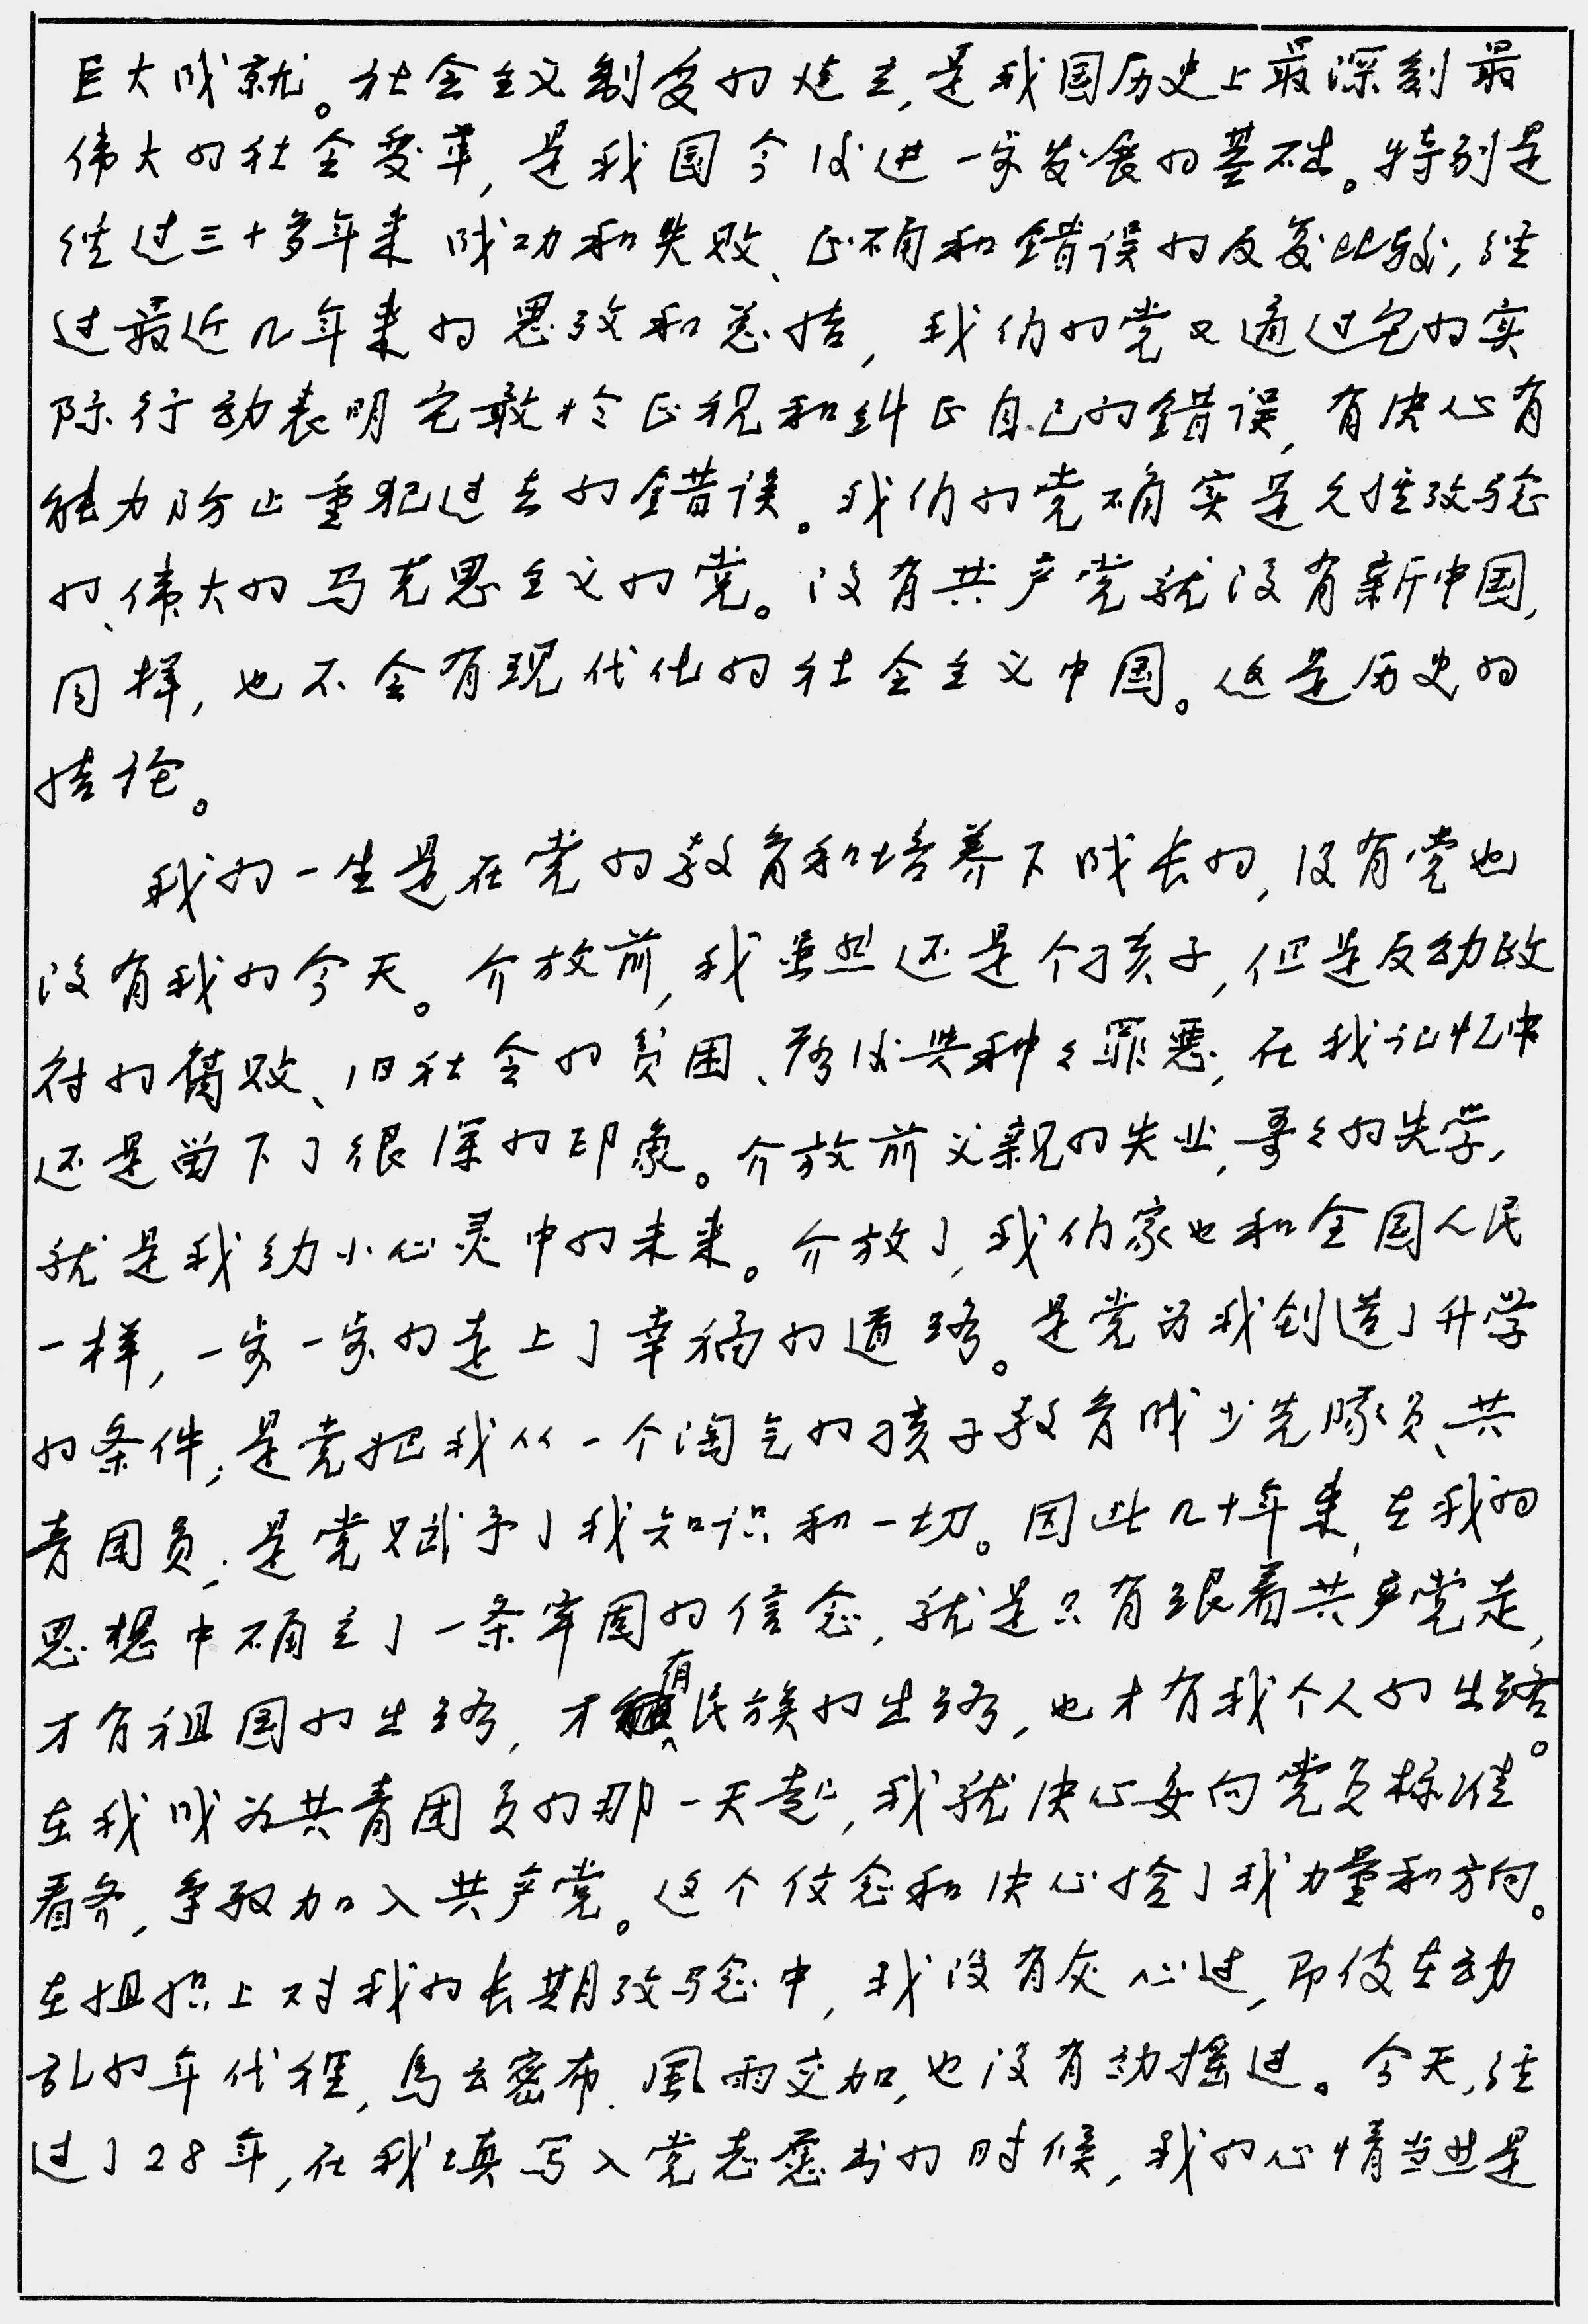 巨大成就。社会主义制度的建立,是我国历史上最深刻最
伟大的社会变革,是我国今后进一步发展的基础。特别是
经过三十多年来成功和失败、正确和错误的反复比较,经
过最近几年来的思考和总结,我们的党又通过它的实
际行动表明它敢于正视和纠正自己的错误,有决心有
能力防止重犯过去的错误。我们的党确实是久经考验
的、伟大的马克思主义的党。没有共产党就没有新中国,
同样,也不会有现代化的社会主义中国。这是历史的
结论。
我的一生是在党的教育和培养下成长的,没有党也
没有我的今天。介放前,我虽然还是个孩子,但是反动政
府的腐败、旧社会的贫困、落后与种々罪恶,在我记忆中
还是留下了很深的印象。介放前父亲的失业,哥々的失学,
就是我幼小心灵中的未来。介放了,我们家也和全国人民
一样,一步一步的走上了幸福的道路。是党为我创造了升学
的条件;是党把我从一个淘气的孩子教育成少先队员、共
青团员;是党赋予了我知识和一切。因此几十年来,在我的
思想中确立了一条牢固的信念,就是只有跟着共产党走,
才有祖国的生路,才有民族的生路,也才有我个人的生路。
在我成为共青团员的那一天起,我就决心要向党员标准
看齐,争取加入共产党。这个信念和决心给了我力量和方向。
在组织上对我的长期考验中,我没有灰心过,即使在动
乱的年代裡,乌云密布、风雨交加,也没有动摇过。今天,经
过了28年,在我填写入党志愿书的时候,我的心情当然是